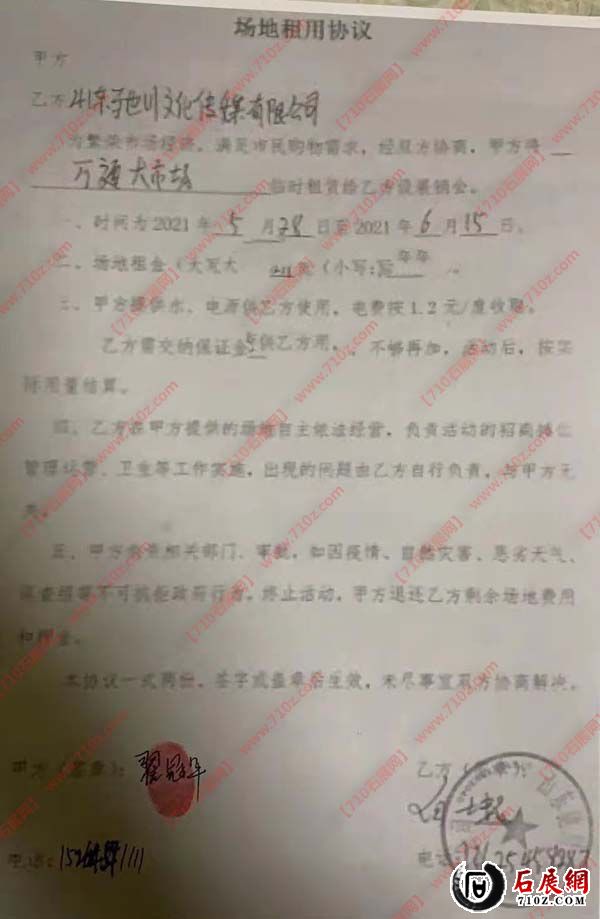 场地租用协议
甲方
乙方 山东 川文化传媒有限公司
为繁荣市场经济，满足市民购物需求，经双方协商，甲方将
万通大市场 临时租赁给乙方设展销会。
一、时间为2021年5月28日至2021年6月15日。
二、场地租金（大写 （小写:
三、甲方提供水、电源供乙方使用，电费按1.2元/度收取。
乙方需交纳保证金 供乙方用，。不够再加，活动后，按实
际用量结算。
四、乙方在甲方提供的场地自主依法经营，负责活动的招商摊位
管理运营、卫生等工作实施，出现的问题由乙方自行负责，与甲方无
关。
五、甲方负责相关部门、审批，如因疫情、自然灾害、恶劣天气、
等不可抗拒政府行为，终止活动，甲方退还乙方剩余场地费用
和押金。
本协议一式两份，签字或盖章后生效，未尽事宜双方协商解决。
甲方（签章）：
乙方（签章）：
电话：
电话
【710石展网】www.710z.com
石展網
710Z.COM